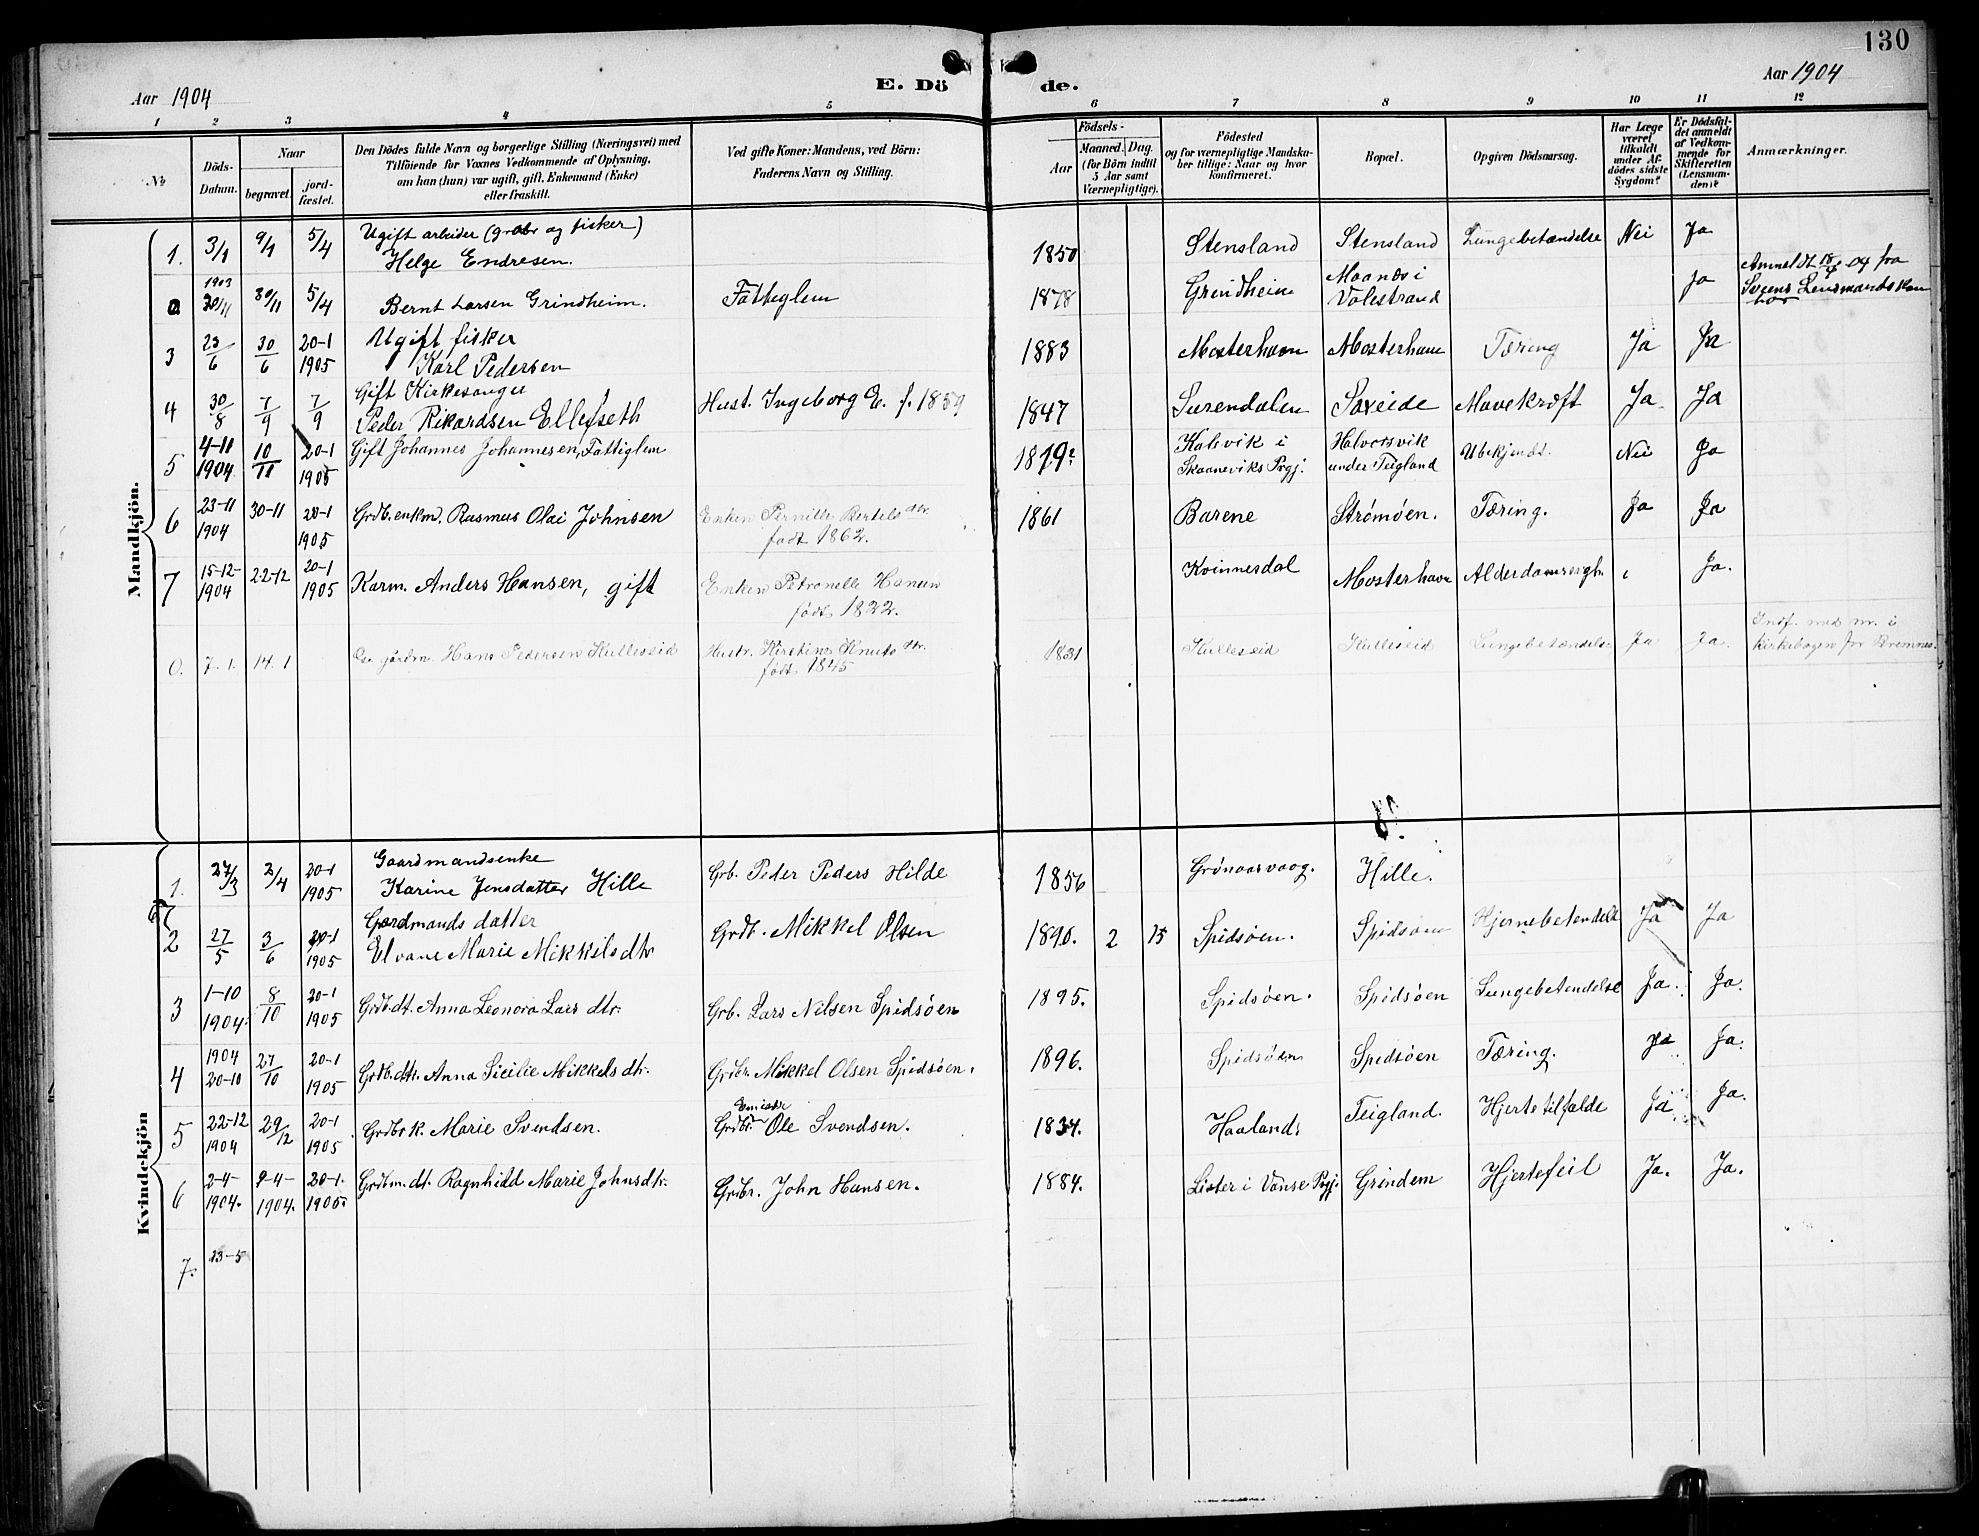 130
Aar 1904
E. Dö
de.
Aar 1904
1 2 3 4 5 6 7 8 9 10 11 12
№
Döds-
Datum.
Naar
begravet.
jord-
fæstet.
Den Dödes fulde Navn og borgerlige Stilling (Næringsvei) med
Tilföiende for Voxnes Vedkommende af Oplysning,
om han (hun) var ugift, gift, Enkemand (Enke)
eller fraskilt.
Ved gifte Koner: Mandens, ved Börn:
Faderens Navn og Stilling.
Födsels-
Aar
Maaned. Dag.
(for Börn indtil
5 Aar samt
Værnepligtige).
Födested
og for værnepligtige Mandska-
ber tillige: Naar og hvor
konfirmeret.
Bopæl.
Opgiven Dödsaarsag.
Har Læge
været
tilkaldt
under Af-
dödes sidste
Sygdom?
Er Dödsfal-
det anmeldt
af Vedkom-
mende for
Skifteretten
(Lensman-
den)?
Anmærkninger.
Mandkjön.
1. 3/1 9/1 5/4 Ugift arbeider (grdbr og fisker)
Helge Endresen. 1850 Stensland Stensland Lungebetændelse Nei Ja
1903
30/11 30/11 5/4 Bernt Larsen Grindheim. Fatteglem 1878 Grindheim Maanæs i
Valestrand Ja Anmeldt 18/4 04 fra
Sveens Lensmandskon
tor
3 23/6 30/6 20-1
1905 Ugift fisker
Karl Pedersen 1883 Mosterhavn Mosterhavn Tæring Ja Ja
4 30/8 7/9 7/9 Gift Kirkesanger
Peder Rikardsen Ellefseth Hust. Ingeborg E. f. 1859 1847 Surendalen Sæeide Mavekræft Ja. Ja
5 4-11
1904 10/11 20-1
1905 Gift Johannes Johannesen, Fattiglem 1819? Kalevik i
Skaaneviks Prgj. Halvorsvik
under Teigland Ubekjendt. Nei Ja
6 23-11
1904 30-11 20-1
1905 Grdb. enkm. Rasmus Olai Johnsen Enken Pernille Bertels dtr.
født 1862. 1861 Barene Strømøen. Tæring. Ja Ja
7 15-12-
1904 22-12 20-1
1905 Karm. Anders Hansen, gift Enken Petronelle Hansen
født 1822. Kvinnesdal Mosterhavn Ja.
0. 7.1. 14.1 gårdm. Hans Pedersen Kulleseid Hustr. Kirstine Knuts dtr.
født 1845 1831 Kulleseid Kulleseid Lungebetændelse Ja Ja. Indf. med nr. i
kirkebogen for Bremnes.
Kvindekjön
1. 27/3 2/4 20-1
1905 Gaardmandsenke
Karine Jensdatter Hille Grb. Peder Peders Hilde 1856 Grønaasvaag. Hille.
2 27/5 3/6 20-1
1905 Gardmands datter
Elvane Marie Mikkels dtr Grdb. Mikkel Olsen 1890. 2 15 Spidsøen. Spidsøen Hjernebetendelse Ja Ja
3 1-10
1904. 8/10 20-1
1905 Grdb.dt. Anna Leonora Lars dtr. Grb. Lars Nilsen Spidsøen 1895. Spidsøen. Spidsøen Lungebetendelse Ja. Ja.
4 1904
20-10 27/10 20-1
1905 Grdb.dtr. Anna Sicilie Mikkels dtr. Grdbr. Mikkel Olsen Spidsøen. 1896. Spidsøen Spidsøen Tæring. Ja Ja.
5 22-12
1904 29/12 20-1
1905 Grdbr k. Marie Svendsen. Grdbr. Ole Svendsen. 1834. Haaland. Teigland. Hjertetilfælde Ja Ja.
6 2-4-
1904. 9-4-
1904. 20-1.
1905. Grdbm. dt. Ragnhild Marie Johnsdtr. Grdbr. John Hansen. 1884. Lister i Vanse Prgj. Grindem Hjertefeil Ja. Ja.
7. 23-5